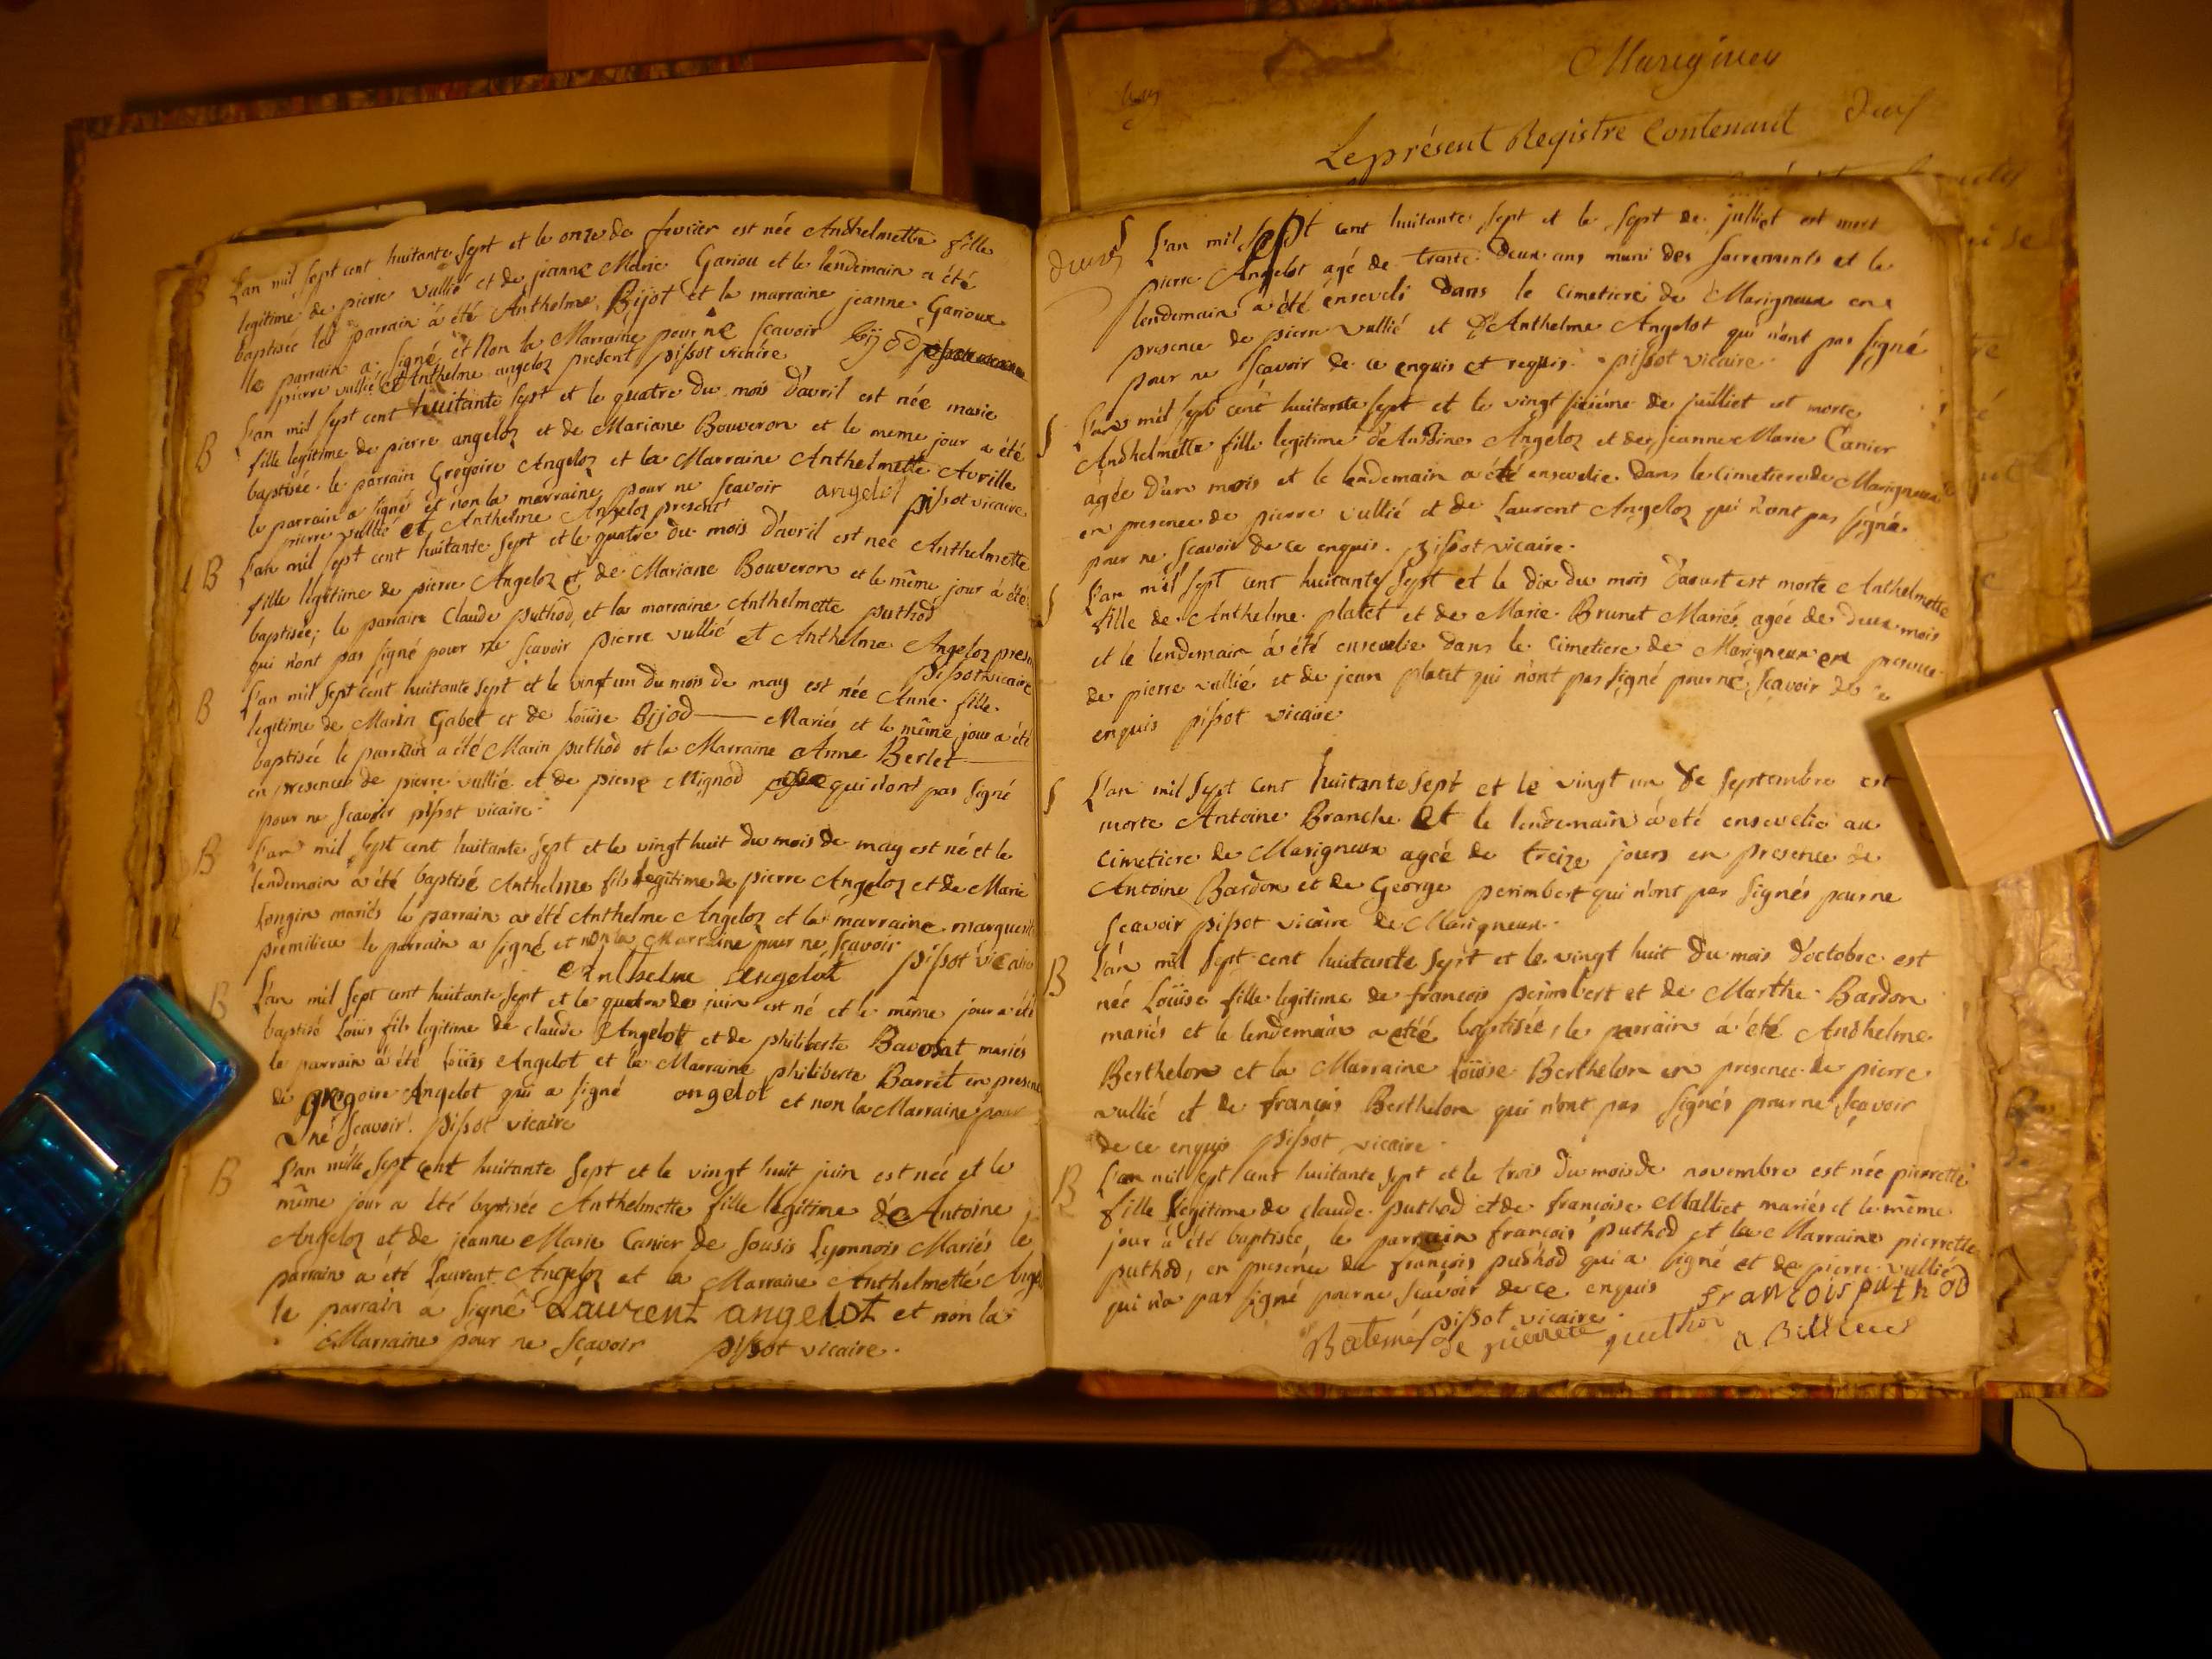 L'an mil sept cent huitante sept et le onze de fevrier est née Andhelmette fille
legitime de pierre vullié et de jeanne Marie Gariou et le lendemain a été
baptisée le parrain à été Anthelme Bijot et la marraine jeanne Garioux
le parrain a signé et Non la Marraine pour ne scavoir bijod
pierre vullié et Anthelme angeloz present pissot vicaire
B L'an mil sept cent huitante sept et le quatre du mois d'avril est née marie
fille legitime de pierre angeloz et de Mariane Bouveron et le meme jour a été
baptisée le parrain Gregoire Angeloz et la Marraine Anthelmette Avrille
le parrain a signé et non la marraine pour ne scavoir angelot pissot vicaire
pierre vullié et Anthelme Angeloz present
B L'an mil sept cent huitante sept et le quatre du mois d'avril est née Anthelmette
fille legitime de pierre Angeloz et de Mariane Bouveron et le même jour à été
baptisée; le parrain Claude puthod, et la marraine Anthelmette puthod
qui n'ont pas signé pour ne scavoir pierre vullié et Anthelme Angeloz presn
pissot vicaire
B L'an mil sept cent huitante sept et le vingt un du mois de may est née Anne fille
legitime de Marin Gabet et de Loüise Bijod Mariés et le même jour a été
baptisée le parrain a été Marin puthod et la Marraine Anne Berlet
en presence de pierre vullié et de pierre Mignod qui n'ont pas signé
pour ne scavoir pissot vicaire
B L'an mil sept cent huitante sept et le vingt huit du mois de may est né et le
lendemain à été baptisé Anthelme fils legitime de pierre Angeloz et de Marie
Longin mariés le parrain a été Anthelme Angeloz et la marraine marguerit
premilieu le parrain a signé et non la Marraine pour ne scavoir pissot vicaire
Anthelme angelot
B L'an mil sept cent huitante sept et le quatre de juin est né et le même jour a été
baptisé Loüis fils legitime de claude Angelott et de philiberte Bavosat mariés
le parrain à été loüis Angelot et la Marraine philiberte Barret en presen
de gregoire Angelot qui a signé angelot et non la Marraine pour
ne scavoir. pissot vicaire
B L'an mille sept cent huitante sept et le vingt huit juin est née et le
même jour a été baptisée Anthelmette fille legitime de Antoine
Angeloz et de jeanne Marie Canier de sousis Lyonnois Mariés le
parrain à été Laurent Angeloz et la Marraine Anthelmette Ange
le parrain à signé Laurent angelot et non la
Marraine pour ne scavoir pissot vicaire.
Le présent Registre Contenant
S L'an mil sept cent huitante sept et le sept de julliet est mort
pierre Angelot agé de trante deux ans muni des sacrements et le
lendemain a été enseveli dans le cimetiere de Marigneux en
presence de pierre vullié et d'Anthelme Angelot qui n'ont pas signé
pour ne scavoir de ce enquis et requis. pissot vicaire.
S L'an mil sept cent huitante sept et le vingt sixiéme de juilliet est morte
Andhelmette fille legitime de Antoine Angeloz et de jeanne Marie Canier
agée d'un mois et le lendemain a été ensevelie dans le cimetiere de Marigneux
en presence de pierre vullié et de Laurent Angeloz qui n'ont pas signé
pour ne scavoir de ce enquis. pissot vicaire.
S L'an mil sept cent huitante sept et le dix du mois d'aoust est morte Anthelmette
fille de Anthelme platet et de Marie Brunet Mariés agée de deux mois
et le lendemain à été ensevelie dans le cimetiere de Marigneux en presence
de pierre vullié et de jean platet qui n'ont pas signé pour ne scavoir de ce
enquis pissot vicaire
S L'an mil sept cent huitante sept et le vingt un de septembre est
morte Antoine Branche et le lendemain à été ensevelie au
cimetiere de Marigneux ageé de treize jours en presence de
Antoine Bardon et de George perimbert qui n'ont pas signés pour ne
scavoir pissot vicaire de Marigneux.
B L'an mil sept cent huitante sept et le vingt huit du mois d'octobre est
née Loüise fille legitime de françois perimbert et de Marthe Bardon
mariés et le lendemain a etéé baptisée, le parrain à été Andhelme
Berthelon et la Marraine Loüise Berthelon en presence de pierre
vullié et de françois Berthelon qui n'ont pas signés pour ne scavoir
de ce enquis pissot vicaire
B L'an mil sept cent huitante sept et le trois du mois de novembre est née pierrette
fille legitime de claude puthod et de françoise Malliet mariés et le même
jour à été baptisée, le parrain françois puthod et la Marraine pierrette
puthod, en presence de françois puthod qui a signé et de pierre vullié
qui n'a pas signé pour ne scavoir de ce enquis françois puthod
pissot vicaire.
Batemes de pierrete puthod a Billieu